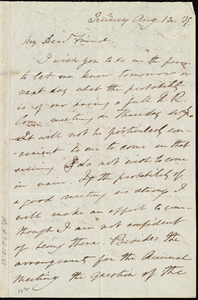 Quincy Aug. 12. 37.
My Dear Friend
I wish you to do me the favor
to let me know tomorrow or
next day what the probability
is of our having a full
Com. meeting on Thursday
It will not be particularly con-
venient to me to come in that
evening I do not wish to come
in vain. If the probability of
a good meeting is strong I
will make an effort to come
though I am not confident
of being there. Besides the
arrangement for the Annual
Meeting the question of the